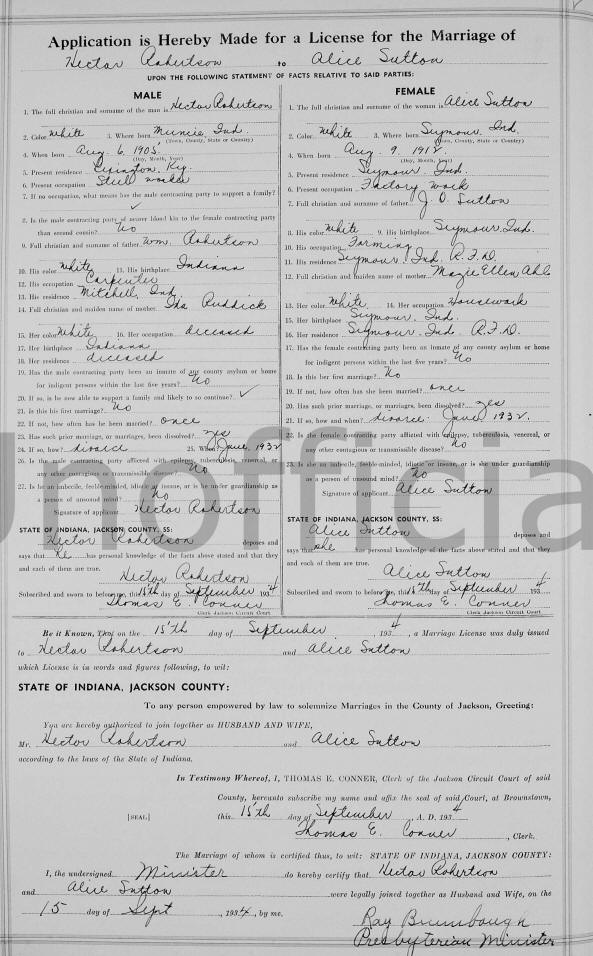 Application is Hereby Made for a License for the Marriage of
Hector Robertson to Alice Sutton
UPON THE FOLLOWING STATEMENT OF FACTS RELATIVE TO SAID PARTIES:
MALE
1. The full christian and surname of the man is Hector Robertson
2. Color White 3. Where born Muncie, Ind.
(Town, County, State or Country)
4. When born Aug. 6, 1905
(Day, Month, Year)
5. Present residence Lexington, Ky.
6. Present occupation Steel worker
7. If no occupation, what means has the male contracting party to support a family?
✓
8. Is the male contracting party of nearer blood kin to the female contracting party
than second cousin? No
9. Full christian and surname of father Wm. Robertson
10. His color White 11. His birthplace Indiana
12. His occupation Carpenter
13. His residence Mitchell, Ind.
14. Full christian and maiden name of mother Ida Ruddick
15. Her color White 16. Her occupation deceased
17. Her birthplace Indiana
18. Her residence deceased
19. Has the male contracting party been an inmate of any county asylum or home
for indigent persons within the last five years? No
20. If so, is he now able to support a family and likely to so continue? ✓
21. Is this his first marriage? No
22. If not, how often has he been married? once
23. Has such prior marriage, or marriages, been dissolved? yes
24. If so, how? divorce 25. When? June, 1932
26. Is the male contracting party afflicted with epilepsy, tuberculosis, venereal, or
any other contagious or transmissible disease? No
27. Is he an imbecile, feeble-minded, idiotic or insane, or is he under guardianship
as a person of unsound mind? No
Signature of applicant Hector Robertson
STATE OF INDIANA, JACKSON COUNTY, SS:
Hector Robertson deposes and
says that he has personal knowledge of the facts above stated and that they
and each of them are true.
Hector Robertson
Subscribed and sworn to before me, this 15th day of September 1934
Thomas E. Conner
Clerk Jackson Circuit Court
FEMALE
1. The full christian and surname of the woman is Alice Sutton
2. Color White 3. Where born Seymour, Ind.
(Town, County, State or Country)
4. When born Aug. 9, 1912.
(Day, Month, Year)
5. Present residence Seymour, Ind.
6. Present occupation Factory work
7. Full christian and surname of father J. O. Sutton
8. His color White 9. His birthplace Seymour, Ind.
10. His occupation Farming
11. His residence Seymour, Ind. R.F.D.
12. Full christian and maiden name of mother Mazie Ellen
13. Her color White 14. Her occupation Housework
15. Her birthplace Seymour, Ind.
16. Her residence Seymour, Ind. R.F.D.
17. Has the female contracting party been an inmate of any county asylum or home
for indigent persons within the last five years? No
18. Is this her first marriage? No
19. If not, how often has she been married? once
20. Has such prior marriage, or marriages, been dissolved? yes
21. If so, how and when? divorce, June, 1932.
22. Is the female contracting party afflicted with epilepsy, tuberculosis, venereal, or
other contagious or transmissible disease? No
23. Is she an imbecile, feeble-minded, idiotic or insane, or is she under guardianship
as a person of unsound mind? No
Signature of applicant Alice Sutton
STATE OF INDIANA, JACKSON COUNTY, SS:
Alice Sutton deposes and
says that she has personal knowledge of the facts above stated and that they
and each of them are true.
Alice Sutton
Subscribed and sworn to before me, this 15th day of September 1934
Thomas E. Conner
Clerk Jackson Circuit Court
Unofficial
Be it Known, That on the 15th day of September 1934, a Marriage License was duly issued
to Hector Robertson and Alice Sutton
which License is in words and figures following, to wit:
STATE OF INDIANA, JACKSON COUNTY:
To any person empowered by law to solemnize Marriages in the County of Jackson, Greeting:
You are hereby authorized to join together as HUSBAND AND WIFE,
Mr. Hector Robertson and Alice Sutton
according to the laws of the State of Indiana.
In Testimony Whereof, I, THOMAS E. CONNER, Clerk of the Jackson Circuit Court of said
County, hereunto subscribe my name and affix the seal of said Court, at Brownstown,
[SEAL] this 15th day of September, A. D. 1934
Thomas E. Conner, Clerk.
The Marriage of whom is certified thus, to wit: STATE OF INDIANA, JACKSON COUNTY:
I, the undersigned Minister do hereby certify that Hector Robertson
and Alice Sutton were legally joined together as Husband and Wife, on the
15 day of Sept, 1934, by me.
Ray Brumbaugh
Presbyterian Minister